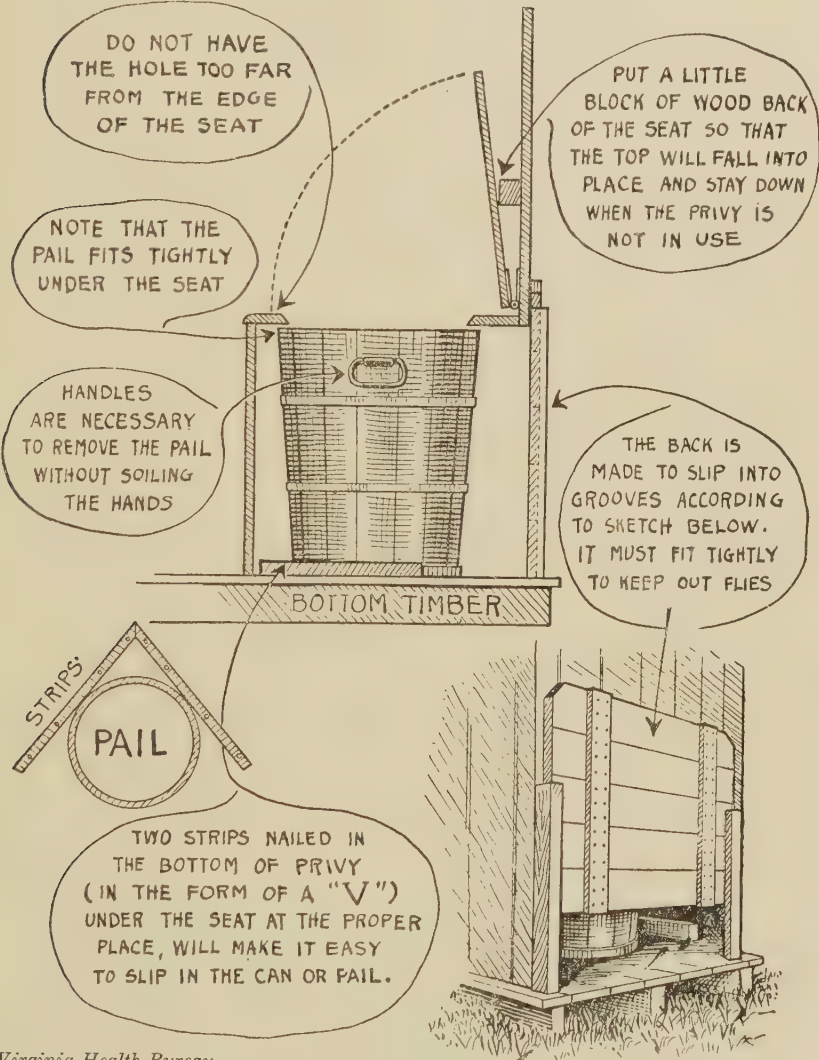 DO NOT HAVE
THE HOLE TOO FAR
FROM THE EDGE
OF THE SEAT
PUT A LITTLE
BLOCK OF WOOD BACK
OF THE SEAT SO THAT
THE TOP WILL FALL INTO
PLACE AND STAY DOWN
WHEN THE PRIVY IS
NOT IN USE
NOTE THAT THE
PAIL FITS TIGHTLY
UNDER THE SEAT
HANDLES
ARE NECESSARY
TO REMOVE THE PAIL
WITHOUT SOILING
THE HANDS
THE BACK IS
MADE TO SLIP INTO
GROOVES ACCORDING
TO SKETCH BELOW.
IT MUST FIT TIGHTLY
TO KEEP OUT FLIES
BOTTOM TIMBER
STRIPS
PAIL
TWO STRIPS NAILED IN
THE BOTTOM OF PRIVY
(IN THE FORM OF A "V")
UNDER THE SEAT AT THE PROPER
PLACE, WILL MAKE IT EASY
TO SLIP IN THE CAN OR PAIL.
Virginia Health Bureau